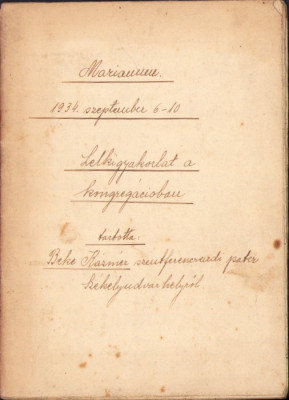 Marianum.
1934. szeptember 6-10
Lelkigyakorlat a
kongregációban
tartotta:
Béke Kázmér szentferencrendi páter
Székelyudvarhelyről.